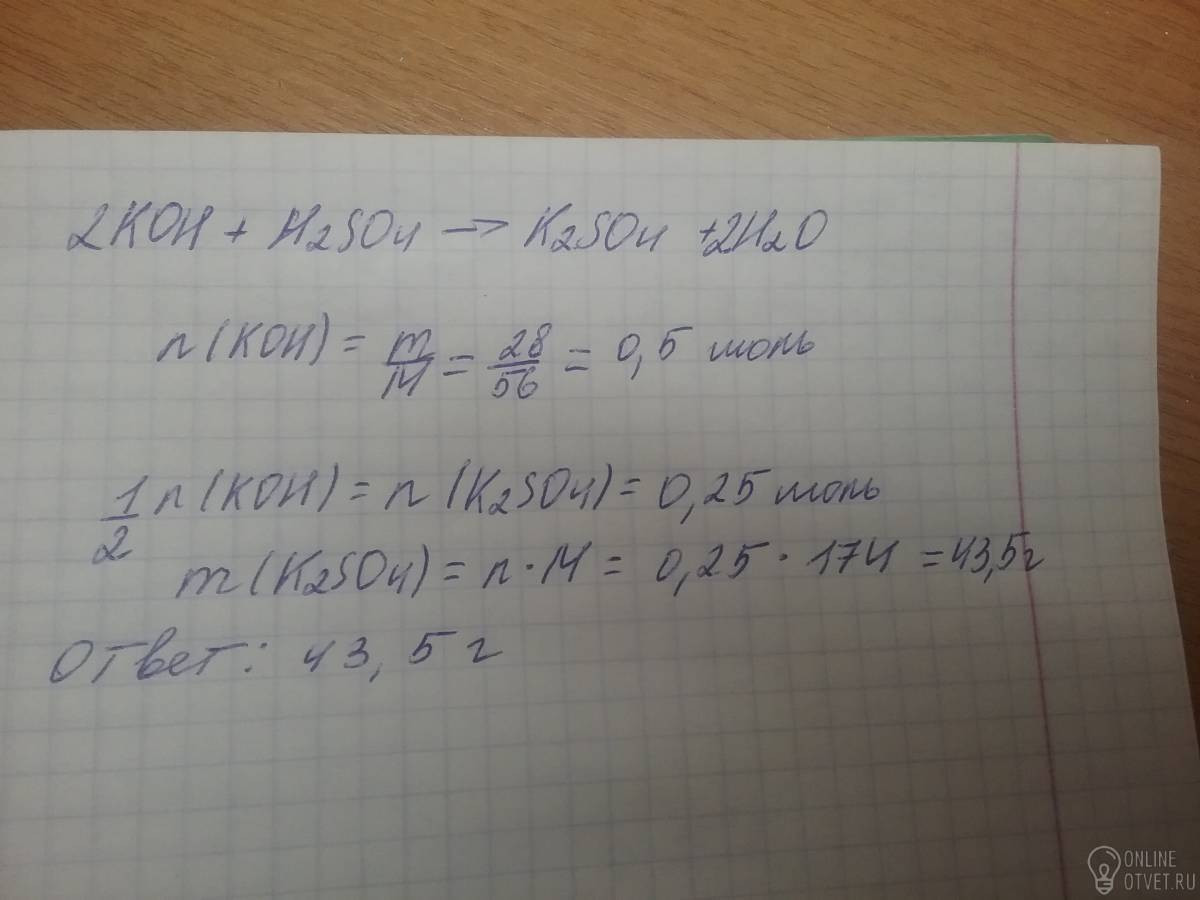 2KOH + H₂SO₄ → K₂SO₄ + 2H₂O
n(KOH) = m/M = 28/56 = 0,5 моль
1/2 n(KOH) = n(K₂SO₄) = 0,25 моль
m(K₂SO₄) = n · M = 0,25 · 174 = 43,5 г
Ответ: 43,5 г
ONLINE
OTVET.RU